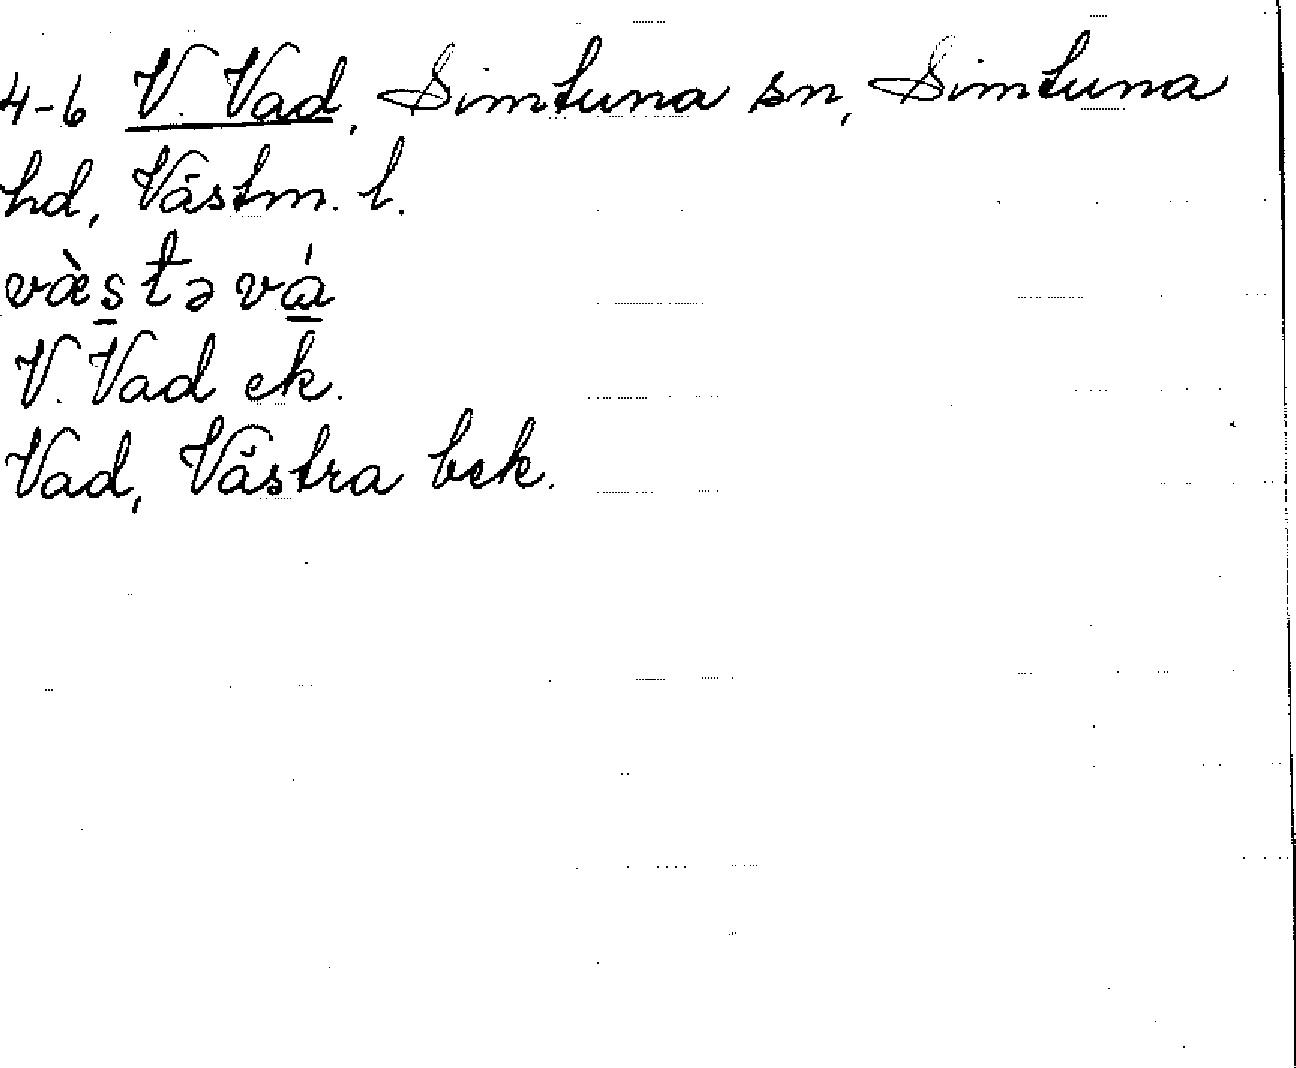 4-6 V. Vad, Simtuna sn, Simtuna
hd, Västm. l.
væ̀s̲təvá̲
V. Vad ek.
Vad, Västra bek.